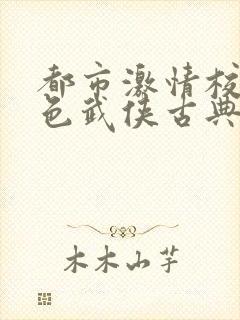 都市激情校
色武侠古典
木木山芋